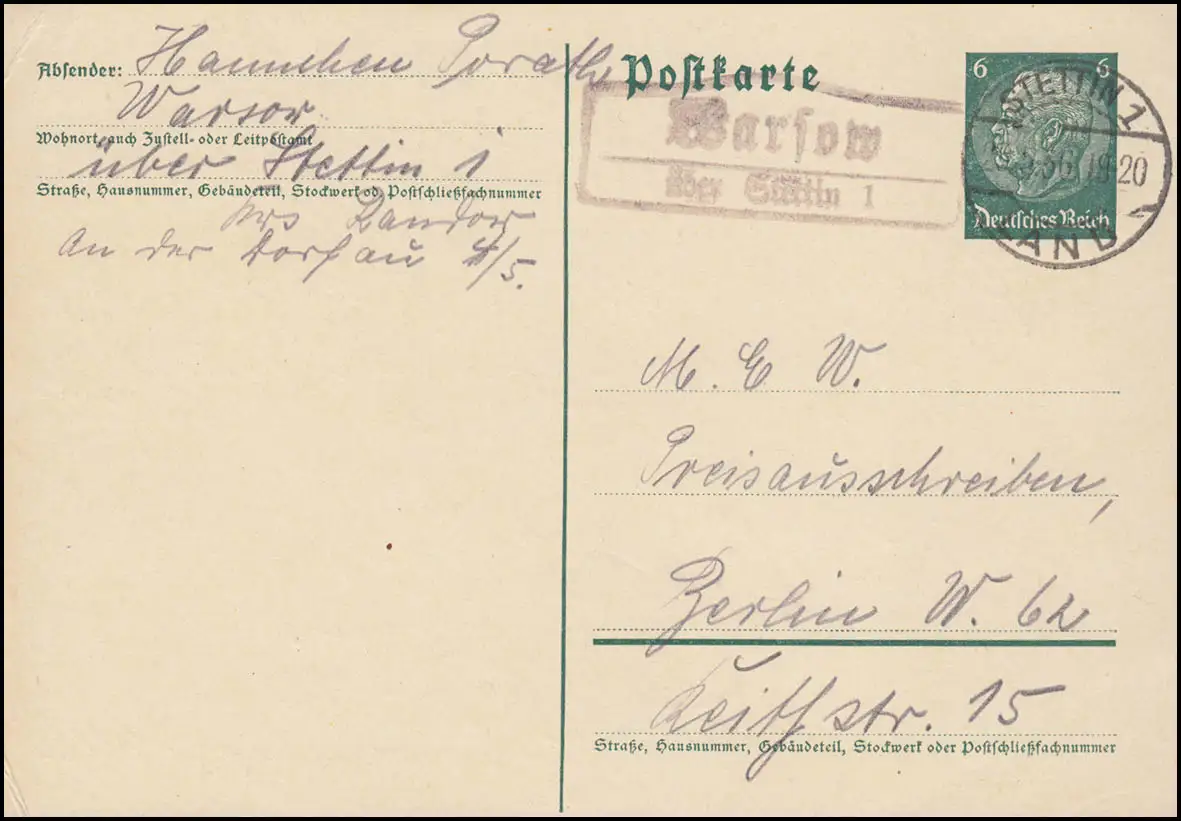 Absender: Hannchen Porath
Warsow
Wohnort, auch Zustell- oder Leitpostamt
über Stettin 1
Straße, Hausnummer, Gebäudeteil, Stockwerk od. Postschließfachnummer
Krs Randow
An der Dorfau 4/5.
Postkarte
Warsow
über Stettin 1
6 6
Deutsches Reich
STETTIN 1
36 19-20
LAND
M. E W.
Preisausschreiben,
Berlin W. 62
Keithstr. 15
Straße, Hausnummer, Gebäudeteil, Stockwerk oder Postschließfachnummer